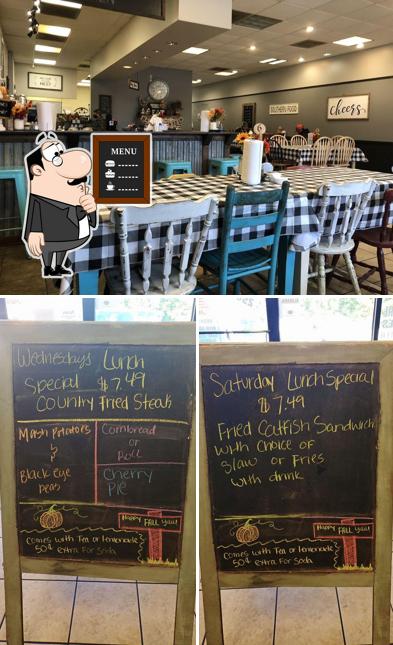 SOUTHERN FOOD
cheers
MENU
Wednesdays Lunch
Special $7.49
Country Fried Steak
Mash Potatoes
&
Black eye
peas
Cornbread
or
Roll
Cherry
Pie
Happy FALL Yall!
Comes with Tea or Lemonade
50¢ extra For Soda
Saturday Lunch Special
$7.49
Fried Catfish Sandwich
with choice of
slaw or Fries
with drink
Happy FALL Yall!
Comes with Tea or Lemonade
50¢ extra For Soda